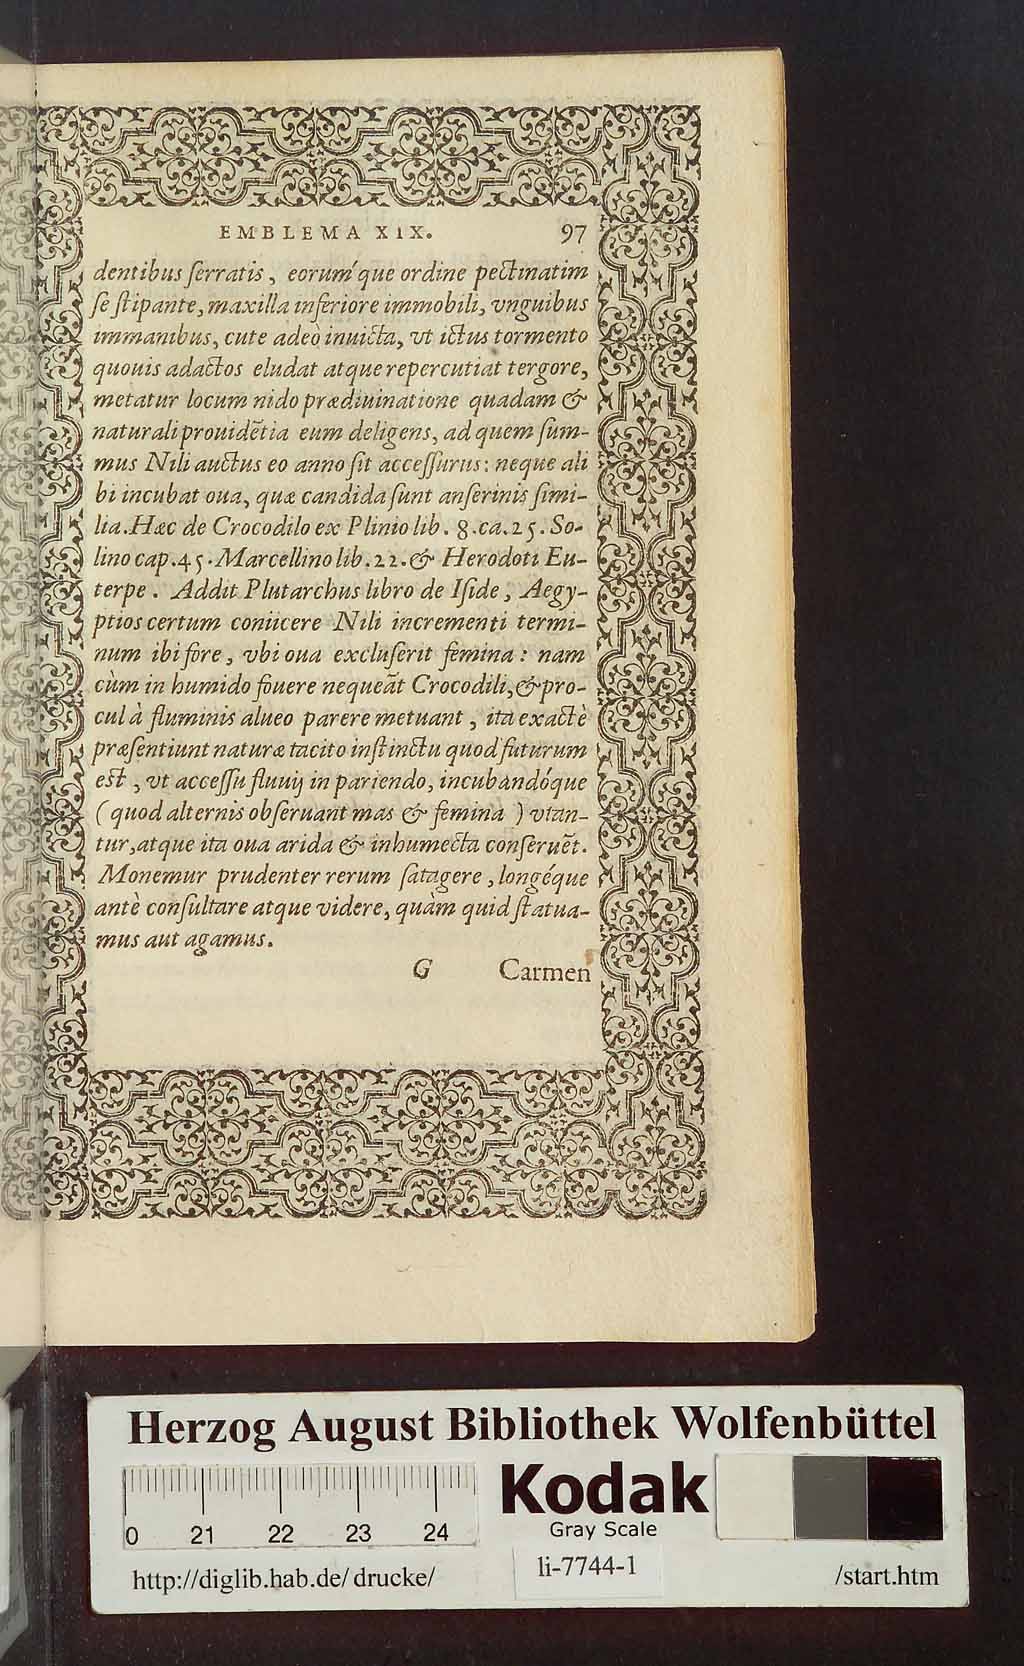 EMBLEMA XIX. 97
dentibus ſerratis, eoruḿque ordine pectinatim
ſe ſtipante, maxilla inferiore immobili, vnguibus
immanibus, cute adeò inuicta, vt ictus tormento
quouis adactos eludat atque repercutiat tergore,
metatur locum nido prædiuinatione quadam &
naturali prouidētia eum deligens, ad quem ſum-
mus Nili auctus eo anno ſit acceſſurus: neque ali
bi incubat oua, quæ candida ſunt anſerinis ſimi-
lia. Hæc de Crocodilo ex Plinio lib. 8. ca. 25. So-
lino cap. 45. Marcellino lib. 22. & Herodoti Eu-
terpe. Addit Plutarchus libro de Iſide, Aegy-
ptios certum coniicere Nili incrementi termi-
num ibi fore, vbi oua excluſerit femina: nam
cùm in humido fouere nequeāt Crocodili, & pro-
cul à fluminis alueo parere metuant, ita exactè
præſentiunt naturæ tacito inſtinctu quod futurum
eſt, vt acceſſu fluuij in pariendo, incubandóque
(quod alternis obſeruant mas & femina) vtan-
tur, atque ita oua arida & inhumecta conſeruēt.
Monemur prudenter rerum ſatagere, longéque
antè conſultare atque videre, quàm quid ſtatua-
mus aut agamus.
G Carmen
Herzog August Bibliothek Wolfenbüttel
Kodak
Gray Scale
0 21 22 23 24
http://diglib.hab.de/drucke/ li-7744-1 /start.htm